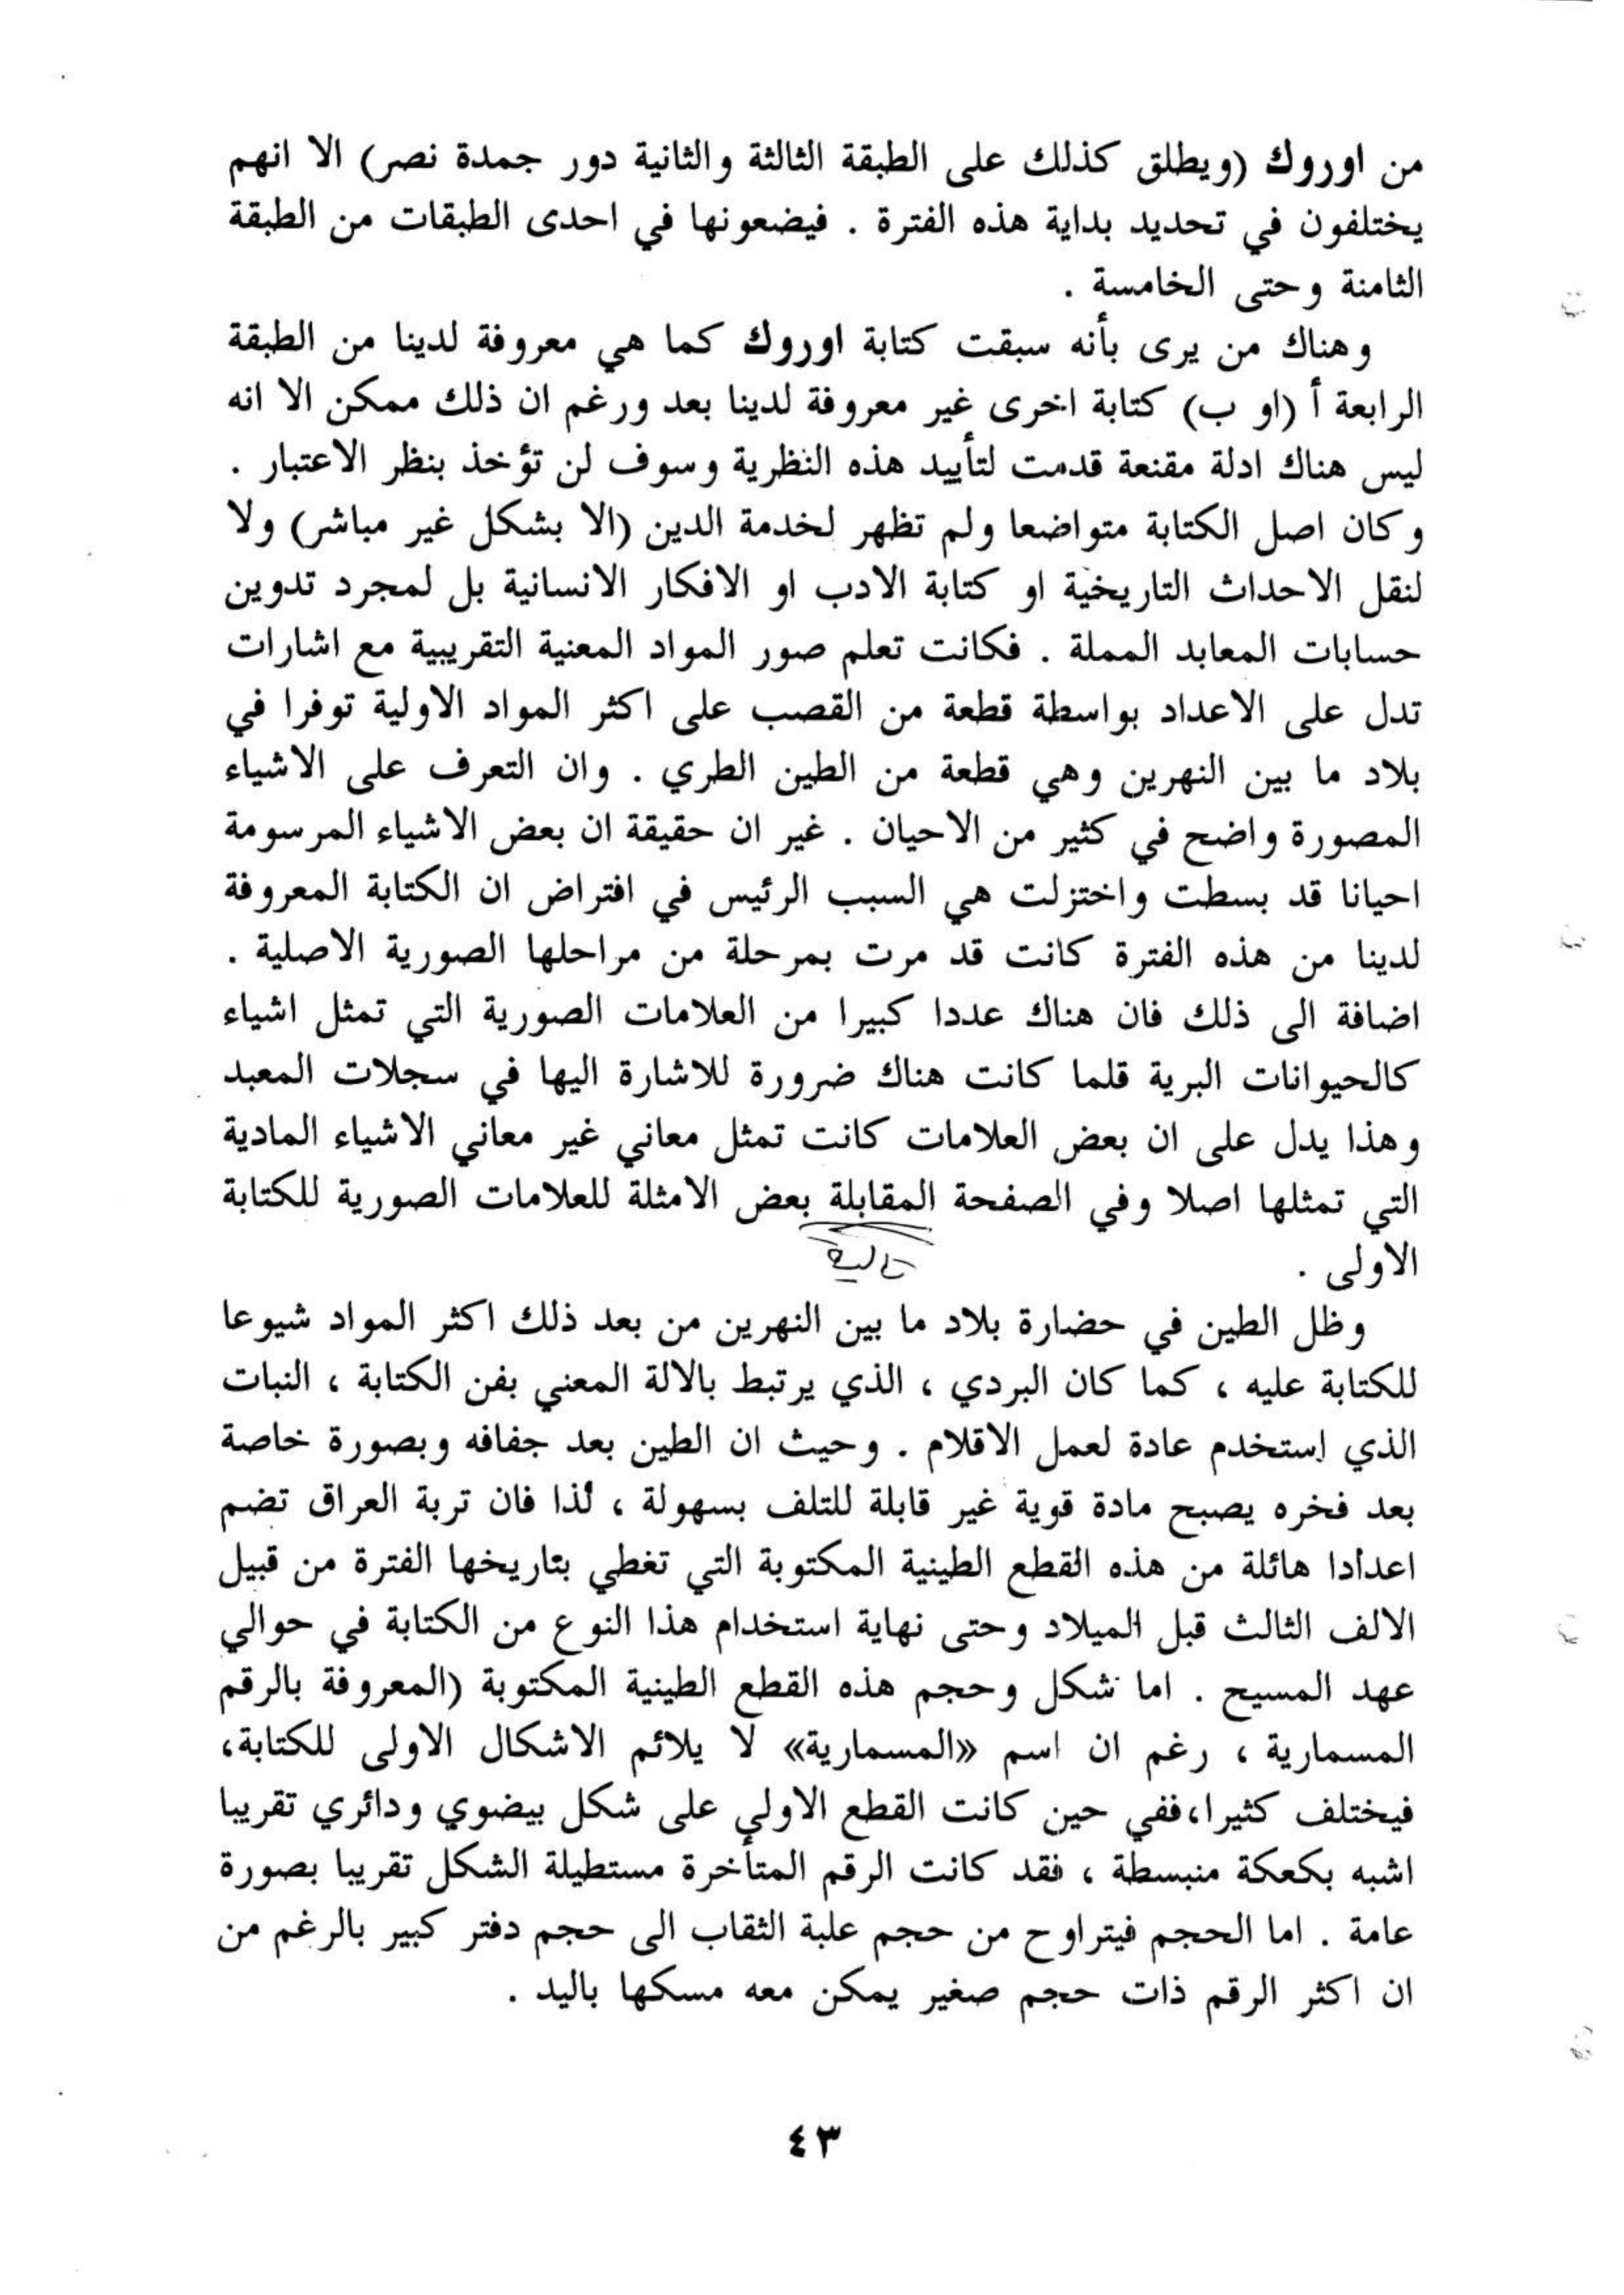 من اوروك (ويطلق كذلك على الطبقة الثالثة والثانية دور جمدة نصر) الا انهم
يختلفون في تحديد بداية هذه الفترة . فيضعونها في احدى الطبقات من الطبقة
الثامنة وحتى الخامسة .
وهناك من يرى بأنه سبقت كتابة اوروك كما هي معروفة لدينا من الطبقة
الرابعة أ (او ب) كتابة اخرى غير معروفة لدينا بعد ورغم ان ذلك ممكن الا انه
ليس هناك ادلة مقنعة قدمت لتأييد هذه النظرية وسوف لن تؤخذ بنظر الاعتبار .
وكان اصل الكتابة متواضعا ولم تظهر لخدمة الدين (الا بشكل غير مباشر) ولا
لنقل الاحداث التاريخية او كتابة الادب او الافكار الانسانية بل لمجرد تدوين
حسابات المعابد المملة . فكانت تعلم صور المواد المعنية التقريبية مع اشارات
تدل على الاعداد بواسطة قطعة من القصب على اكثر المواد الاولية توفرا في
بلاد ما بين النهرين وهي قطعة من الطين الطري . وان التعرف على الاشياء
المصورة واضح في كثير من الاحيان . غير ان حقيقة ان بعض الاشياء المرسومة
احيانا قد بسطت واختزلت هي السبب الرئيس في افتراض ان الكتابة المعروفة
لدينا من هذه الفترة كانت قد مرت بمرحلة من مراحلها الصورية الاصلية .
اضافة الى ذلك فان هناك عددا كبيرا من العلامات الصورية التي تمثل اشياء
كالحيوانات البرية قلما كانت هناك ضرورة للاشارة اليها في سجلات المعبد
وهذا يدل على ان بعض العلامات كانت تمثل معاني غير معاني الاشياء المادية
التي تمثلها اصلا وفي الصفحة المقابلة بعض الامثلة للعلامات الصورية للكتابة
تالية
الاولى .
وظل الطين في حضارة بلاد ما بين النهرين من بعد ذلك اكثر المواد شيوعا
للكتابة عليه ، كما كان البردي ، الذي يرتبط بالالة المعني بفن الكتابة ، النبات
الذي إستخدم عادة لعمل الاقلام . وحيث ان الطين بعد جفافه وبصورة خاصة
بعد فخره يصبح مادة قوية غير قابلة للتلف بسهولة ، لذا فان تربة العراق تضم
اعدادا هائلة من هذه القطع الطينية المكتوبة التي تغطي بتاريخها الفترة من قبيل
الالف الثالث قبل الميلاد وحتى نهاية استخدام هذا النوع من الكتابة في حوالي
عهد المسيح . اما شكل وحجم هذه القطع الطينية المكتوبة (المعروفة بالرقم
المسمارية ، رغم ان اسم «المسمارية» لا يلائم الاشكال الاولى للكتابة،
فيختلف كثيرا،ففي حين كانت القطع الاولى على شكل بيضوي ودائري تقريبا
اشبه بكعكة منبسطة ، فقد كانت الرقم المتأخرة مستطيلة الشكل تقريبا بصورة
عامة . اما الحجم فيتراوح من حجم علبة الثقاب الى حجم دفتر كبير بالرغم من
ان اكثر الرقم ذات حجم صغير يمكن معه مسكها باليد .
٤٣